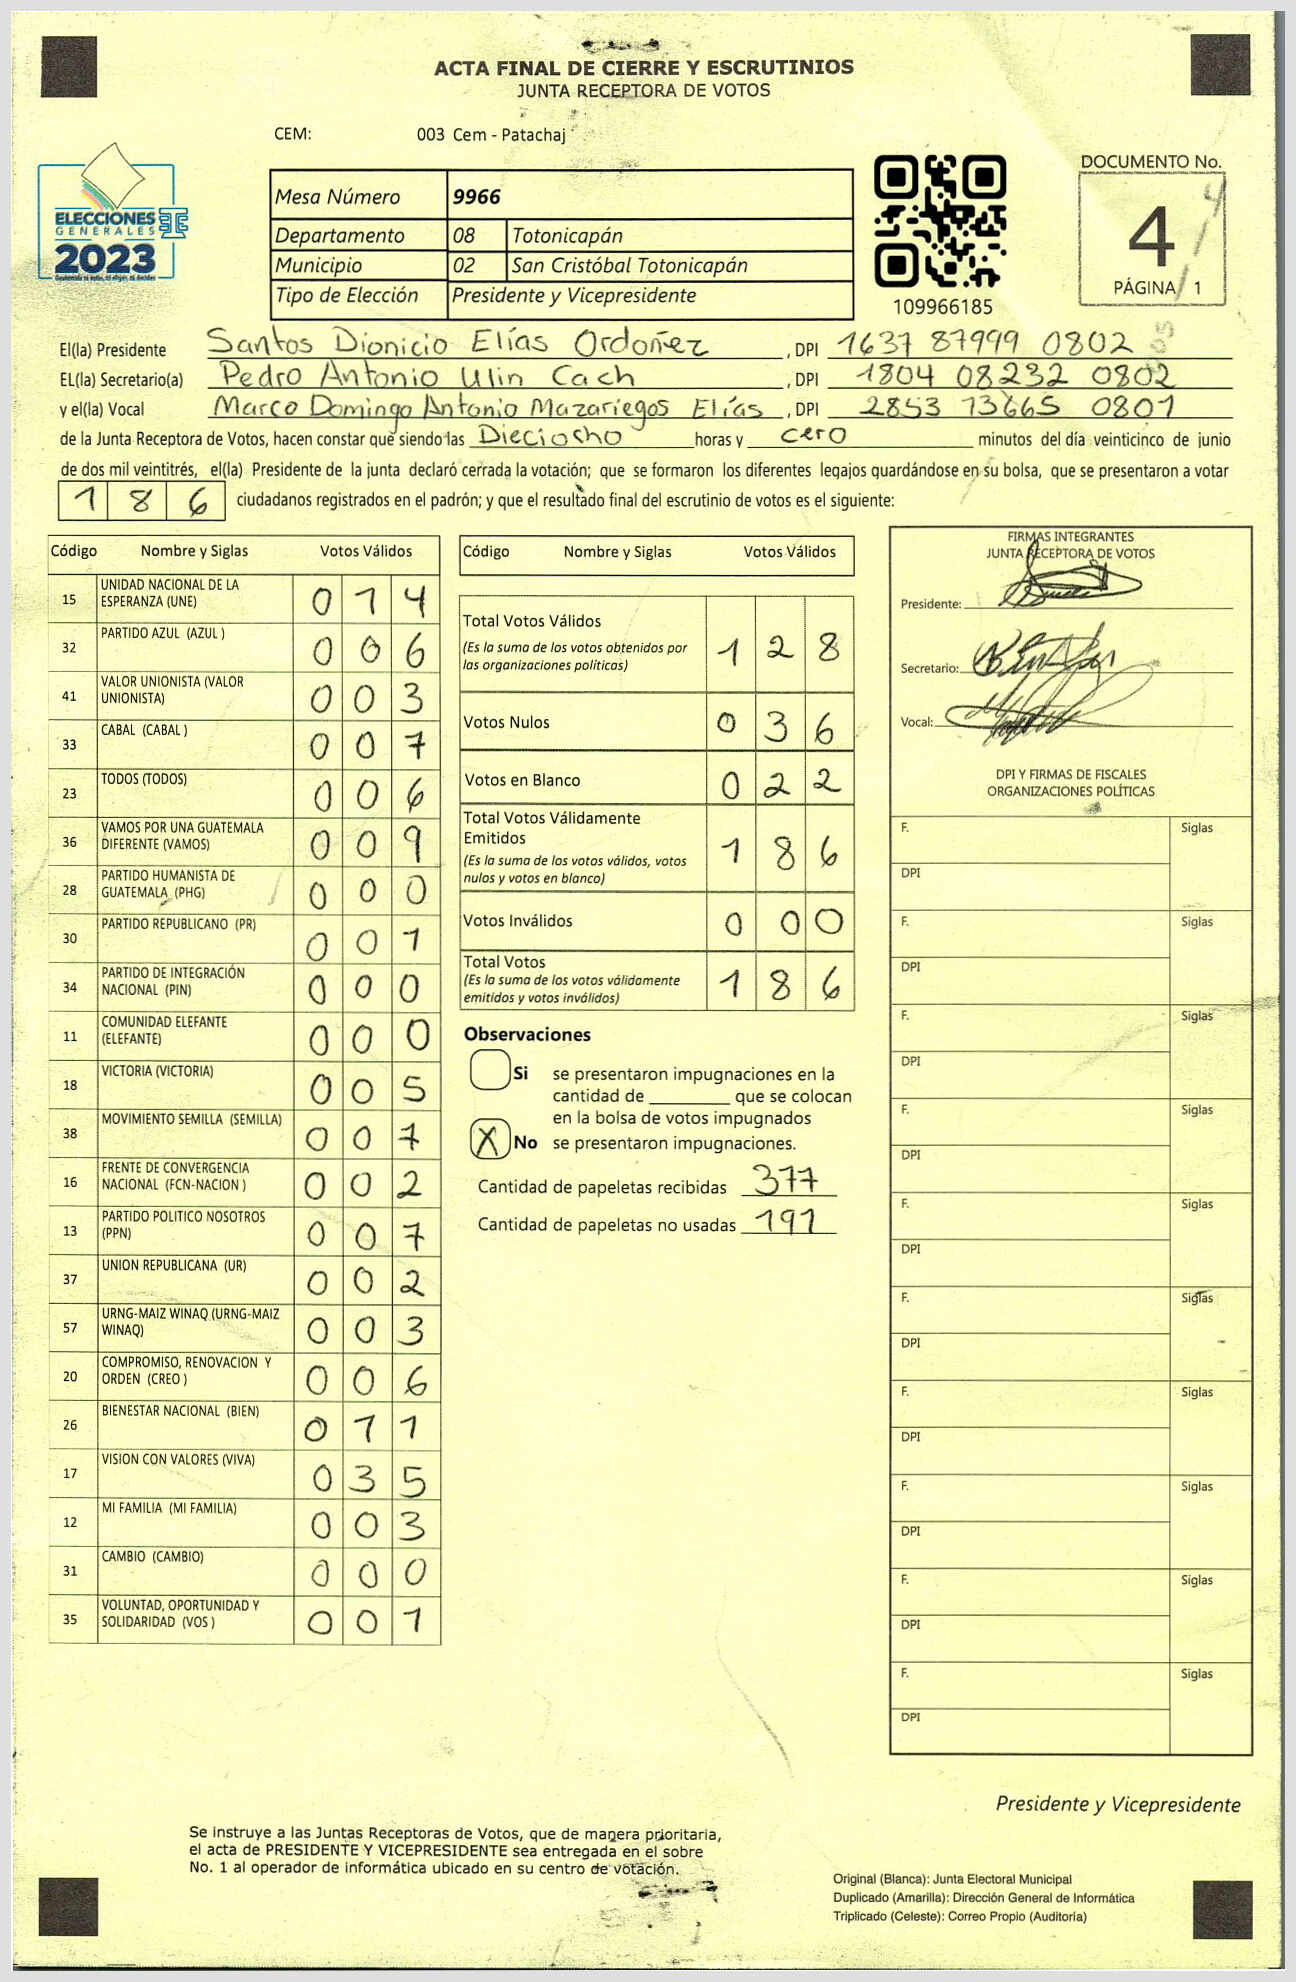 ACTA FINAL DE CIERRE Y ESCRUTINIOS
JUNTA RECEPTORA DE VOTOS
CEM: 003 Cem - Patachaj
ELECCIONES
GENERALES
2023
Mesa Número 9966
Departamento 08 Totonicapán
Municipio 02 San Cristóbal Totonicapán
Tipo de Elección Presidente y Vicepresidente
109966185
DOCUMENTO No.
4
PÁGINA 1
El(la) Presidente Santos Dionicio Elías Ordoñez , DPI 1637 87999 0802
EL(la) Secretario(a) Pedro Antonio Ulin Cach , DPI 1804 08232 0802
y el(la) Vocal Marco Domingo Antonio Mazariegos Elías , DPI 2853 13665 0801
de la Junta Receptora de Votos, hacen constar que siendo las Dieciocho horas y cero minutos del día veinticinco de junio
de dos mil veintitrés, el(la) Presidente de la junta declaró cerrada la votación; que se formaron los diferentes legajos quardándose en su bolsa, que se presentaron a votar
186 ciudadanos registrados en el padrón; y que el resultado final del escrutinio de votos es el siguiente:
Código Nombre y Siglas Votos Válidos
15 UNIDAD NACIONAL DE LA ESPERANZA (UNE) 014
32 PARTIDO AZUL (AZUL ) 006
41 VALOR UNIONISTA (VALOR UNIONISTA) 003
33 CABAL (CABAL ) 007
23 TODOS (TODOS) 006
36 VAMOS POR UNA GUATEMALA DIFERENTE (VAMOS) 009
28 PARTIDO HUMANISTA DE GUATEMALA (PHG) 000
30 PARTIDO REPUBLICANO (PR) 001
34 PARTIDO DE INTEGRACIÓN NACIONAL (PIN) 000
11 COMUNIDAD ELEFANTE (ELEFANTE) 000
18 VICTORIA (VICTORIA) 005
38 MOVIMIENTO SEMILLA (SEMILLA) 007
16 FRENTE DE CONVERGENCIA NACIONAL (FCN-NACION ) 002
13 PARTIDO POLITICO NOSOTROS (PPN) 007
37 UNION REPUBLICANA (UR) 002
57 URNG-MAIZ WINAQ (URNG-MAIZ WINAQ) 003
20 COMPROMISO, RENOVACION Y ORDEN (CREO ) 006
26 BIENESTAR NACIONAL (BIEN) 011
17 VISION CON VALORES (VIVA) 035
12 MI FAMILIA (MI FAMILIA) 003
31 CAMBIO (CAMBIO) 000
35 VOLUNTAD, OPORTUNIDAD Y SOLIDARIDAD (VOS ) 001
Código Nombre y Siglas Votos Válidos
Total Votos Válidos 128
(Es la suma de los votos obtenidos por
las organizaciones políticas)
Votos Nulos 036
Votos en Blanco 022
Total Votos Válidamente
Emitidos 186
(Es la suma de los votos válidos, votos
nulos y votos en blanco)
Votos Inválidos 000
Total Votos 186
(Es la suma de los votos válidamente
emitidos y votos inválidos)
Observaciones
Si se presentaron impugnaciones en la
cantidad de ________ que se colocan
en la bolsa de votos impugnados
X No se presentaron impugnaciones.
Cantidad de papeletas recibidas 377
Cantidad de papeletas no usadas 191
FIRMAS INTEGRANTES
JUNTA RECEPTORA DE VOTOS
Presidente:
Secretario:
Vocal:
DPI Y FIRMAS DE FISCALES
ORGANIZACIONES POLÍTICAS
F. Siglas
DPI
F. Siglas
DPI
F. Siglas
DPI
F. Siglas
DPI
F. Siglas
DPI
F. Siglas
DPI
F. Siglas
DPI
F. Siglas
DPI
F. Siglas
DPI
F. Siglas
DPI
Presidente y Vicepresidente
Se instruye a las Juntas Receptoras de Votos, que de manera prioritaria,
el acta de PRESIDENTE Y VICEPRESIDENTE sea entregada en el sobre
No. 1 al operador de informática ubicado en su centro de votación.
Original (Blanca): Junta Electoral Municipal
Duplicado (Amarilla): Dirección General de Informática
Triplicado (Celeste): Correo Propio (Auditoría)